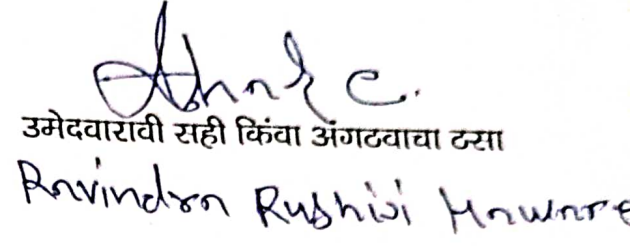 उमेदवाराची सही किंवा अंगठ्याचा ठसा
Ravindra Rushivi Hawnre